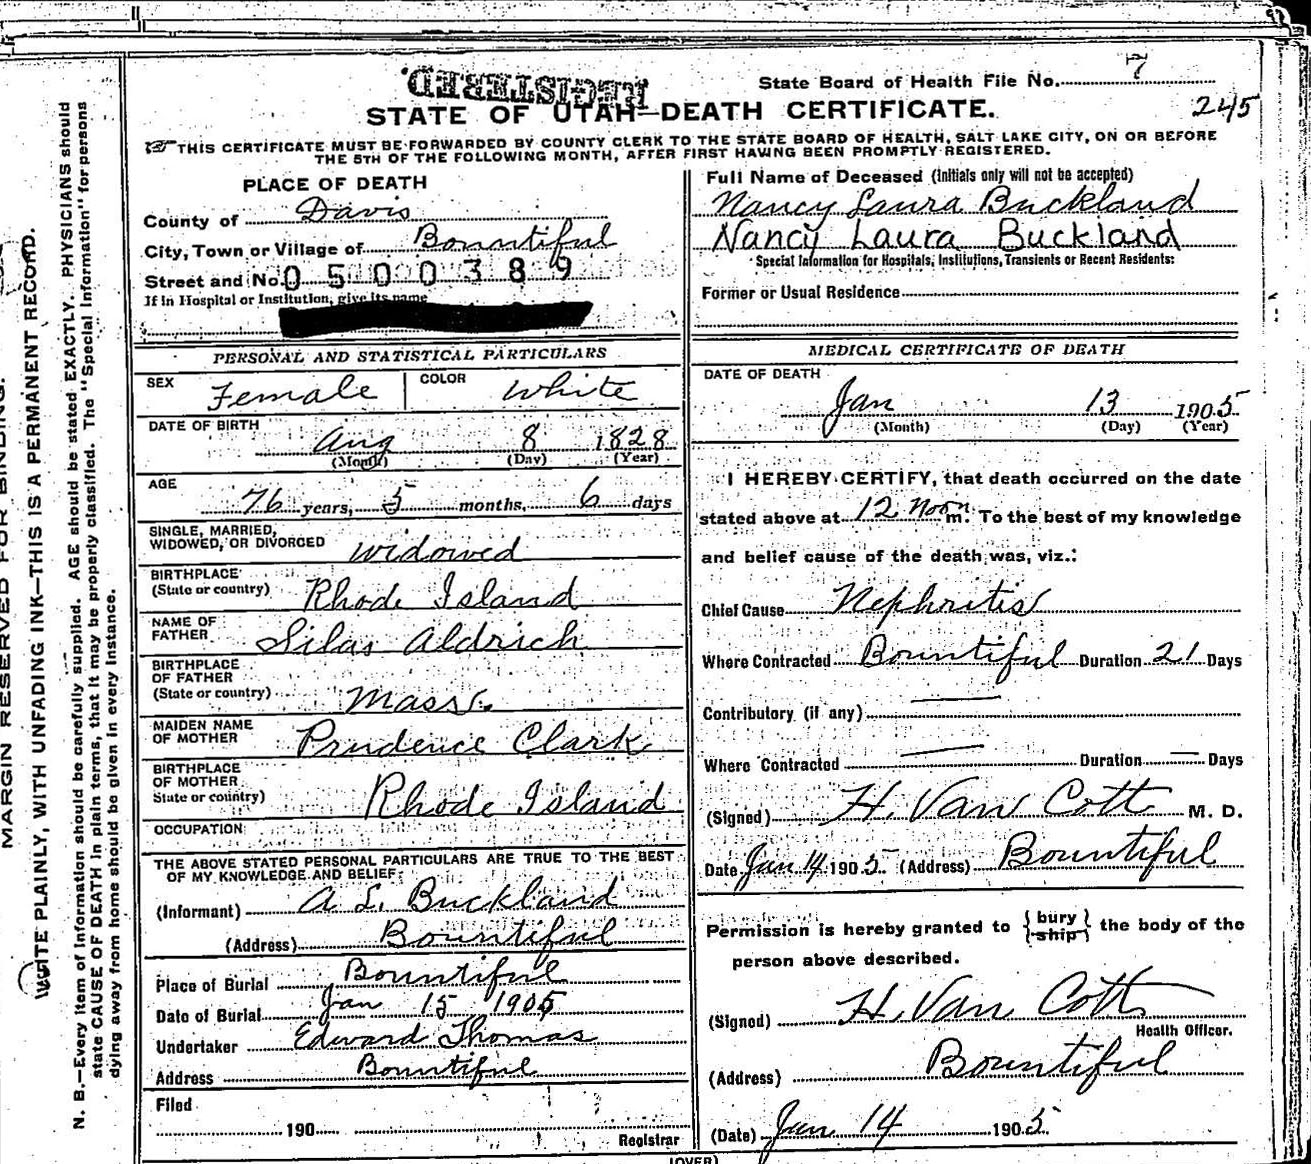 REGISTERED
State Board of Health File No. 7
245
STATE OF UTAH—DEATH CERTIFICATE.
THIS CERTIFICATE MUST BE FORWARDED BY COUNTY CLERK TO THE STATE BOARD OF HEALTH, SALT LAKE CITY, ON OR BEFORE
THE 5TH OF THE FOLLOWING MONTH, AFTER FIRST HAVING BEEN PROMPTLY REGISTERED.
PLACE OF DEATH
County of Davis
City, Town or Village of Bountiful
Street and No. 0500389
If in Hospital or Institution, give its name
Full Name of Deceased (Initials only will not be accepted)
Nancy Laura Buckland
Nancy Laura Buckland
Special Information for Hospitals, Institutions, Transients or Recent Residents:
Former or Usual Residence
PERSONAL AND STATISTICAL PARTICULARS
SEX Female COLOR White
DATE OF BIRTH
Aug 8 1828
(Month) (Day) (Year)
AGE
76 years, 5 months, 6 days
SINGLE, MARRIED,
WIDOWED, OR DIVORCED widowed
BIRTHPLACE
(State or country) Rhode Island
NAME OF
FATHER Silas Aldrich
BIRTHPLACE
OF FATHER
(State or country) Mass.
MAIDEN NAME
OF MOTHER Prudence Clark
BIRTHPLACE
OF MOTHER
State or country) Rhode Island
OCCUPATION
THE ABOVE STATED PERSONAL PARTICULARS ARE TRUE TO THE BEST
OF MY KNOWLEDGE AND BELIEF:
(Informant) A L. Buckland
(Address) Bountiful
Place of Burial Bountiful
Date of Burial Jan 15 1905
Undertaker Edward Thomas
Address Bountiful
Filed
190
Registrar
MEDICAL CERTIFICATE OF DEATH
DATE OF DEATH
Jan 13 1905
(Month) (Day) (Year)
I HEREBY CERTIFY, that death occurred on the date
stated above at 12 Noon m. To the best of my knowledge
and belief cause of the death was, viz.:
Chief Cause Nephritis
Where Contracted Bountiful Duration 21 Days
Contributory (if any) —
Where Contracted — Duration — Days
(Signed) H. Van Cott M. D.
Date Jan 14 1905. (Address) Bountiful
Permission is hereby granted to {bury ship} the body of the
person above described.
(Signed) H. Van Cott
Health Officer.
(Address) Bountiful
(Date) Jan 14 1905
(OVER)
MARGIN RESERVED FOR BINDING.
WRITE PLAINLY, WITH UNFADING INK—THIS IS A PERMANENT RECORD.
N. B.—Every item of information should be carefully supplied. AGE should be stated EXACTLY. PHYSICIANS should
state CAUSE OF DEATH in plain terms, that it may be properly classified. The "Special Information" for persons
dying away from home should be given in every instance.